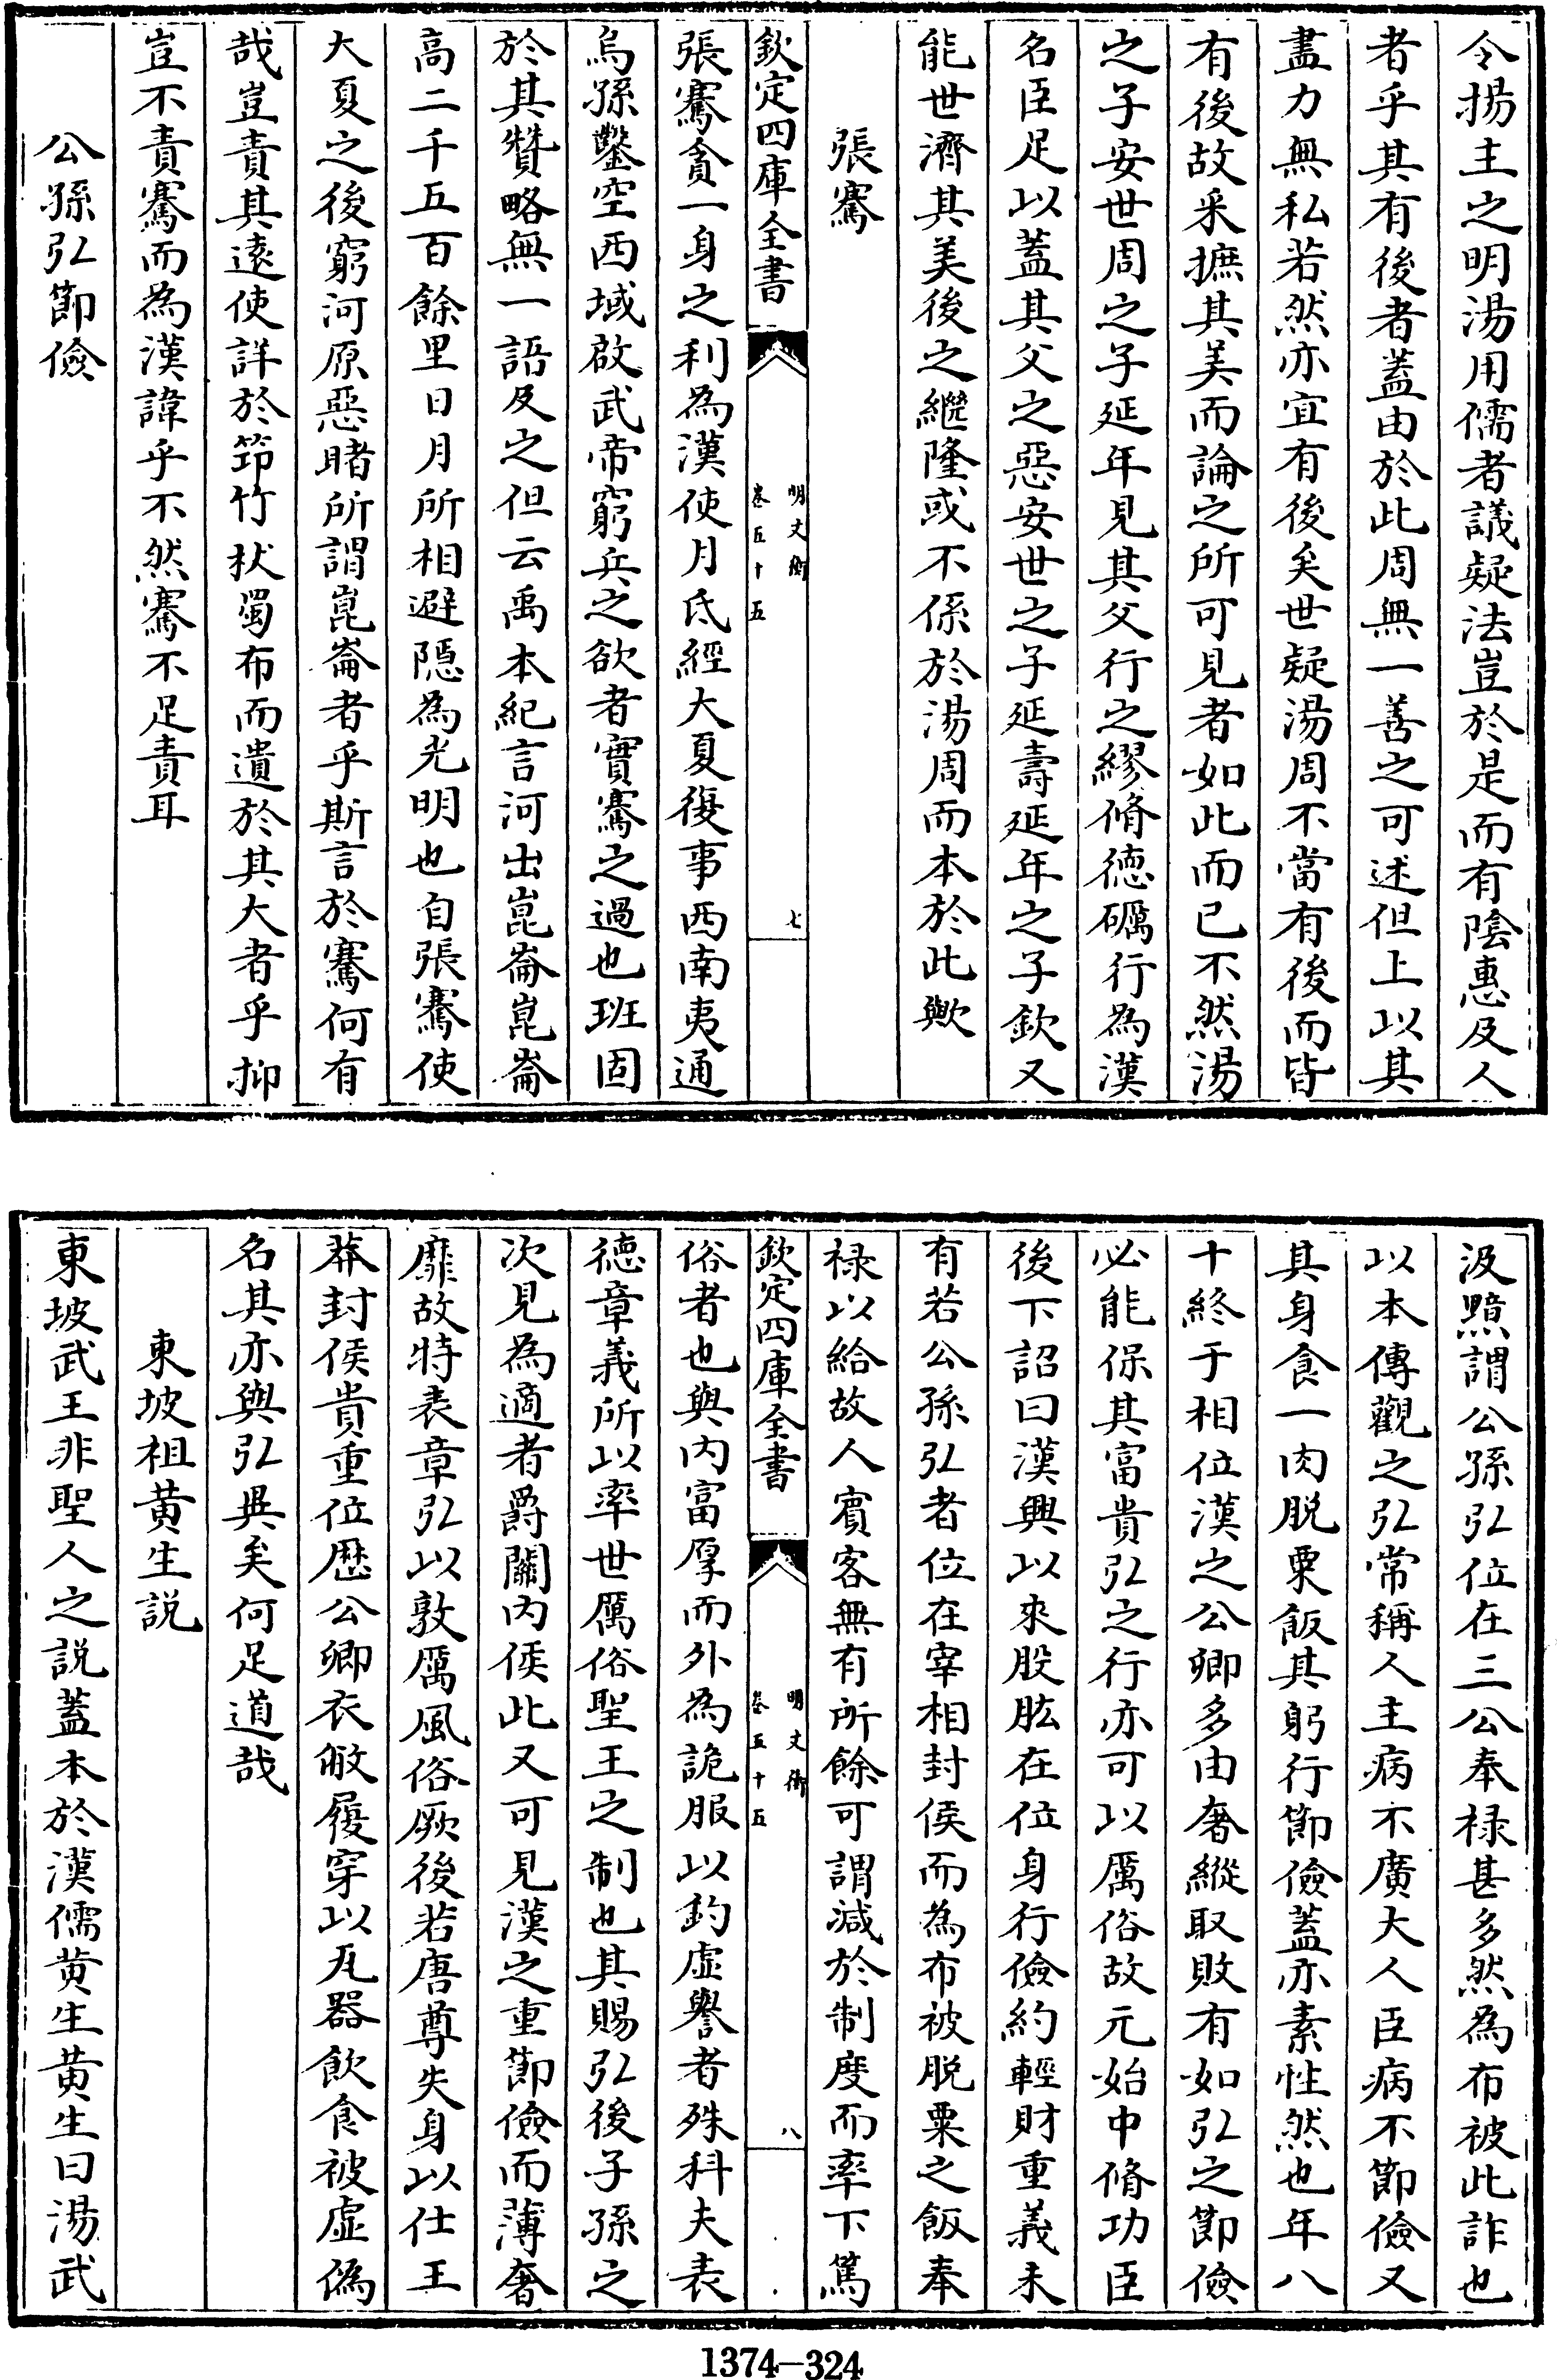 令揚主之明湯用儒者議疑法豈於是而有陰惠及人
者乎其有後者蓋由於此周無一善之可述但上以其
盡力無私若然亦宜有後矣世疑湯周不當有後而皆
有後故采摭其美而論之所可見者如此而已不然湯
之子安世周之子延年見其父行之繆脩德礪行為漢
名臣足以蓋其父之惡安世之子延壽延年之子欽又
能世濟其美後之繼隆或不係於湯周而本於此歟
張騫
欽定四庫全書
明文衡
卷五十五
七
張騫貪一身之利為漢使月氐經大夏復事西南夷通
烏孫鑿空西域啟武帝窮兵之欲者實騫之過也班固
於其贊略無一語及之但云禹本紀言河出崑崙崑崙
高二千五百餘里日月所相避隱為光明也自張騫使
大夏之後窮河原惡睹所謂崑崙者乎斯言於騫何有
哉豈責其遠使詳於筇竹杖蜀布而遺於其大者乎抑
豈不責騫而為漢諱乎不然騫不足責耳
公孫弘節儉
汲黯謂公孫弘位在三公奉祿甚多然為布被此詐也
以本傳觀之弘常稱人主病不廣大人臣病不節儉又
其身食一肉脫粟飯其躬行節儉蓋亦素性然也年八
十終于相位漢之公卿多由奢縱取敗有如弘之節儉
必能保其富貴弘之行亦可以厲俗故元始中脩功臣
後下詔曰漢興以來股肱在位身行儉約輕財重義未
有若公孫弘者位在宰相封侯而為布被脫粟之飯奉
祿以給故人賓客無有所餘可謂減於制度而率下篤
欽定四庫全書
明文衡
卷五十五
八
俗者也與內富厚而外為詭服以釣虛譽者殊科夫表
德章義所以率世厲俗聖王之制也其賜弘後子孫之
次見為適者爵關內侯此又可見漢之重節儉而薄奢
靡故特表章弘以敦厲風俗厥後若唐尊失身以仕王
莽封侯貴重位歷公卿衣敝履穿以瓦器飲食被虛偽
名其亦與弘異矣何足道哉
東坡祖黃生說
東坡武王非聖人之說蓋本於漢儒黃生黃生曰湯武
1374-324